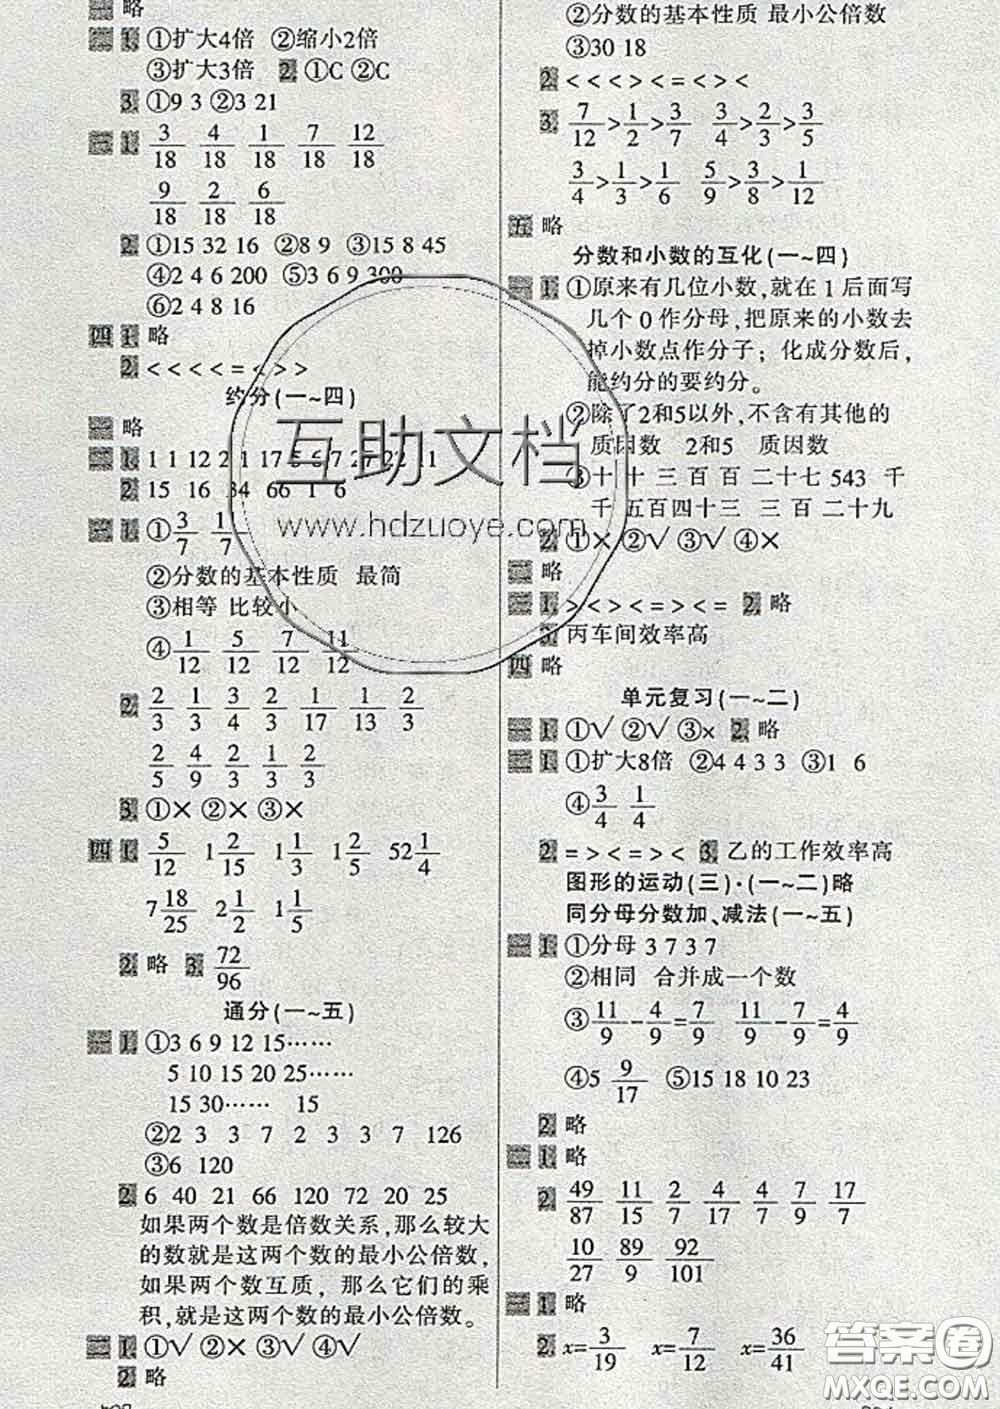 一 略
二 1. ①扩大4倍 ②缩小2倍
③扩大3倍 2. ①C ②C
3. ①9 3 ②3 21
三 1. 3/18 4/18 1/18 7/18 12/18
9/18 2/18 6/18
2. ①15 32 16 ②8 9 ③15 8 45
④2 4 6 200 ⑤3 6 9 300
⑥2 4 8 16
四 1. 略
2. < < < < = < > >
约分(一~四)
一 略
二 1. 1 1 12 2 1 17 5 6 7
2. 15 16 34 66 1 6
三 1. ①3/7 1/7
②分数的基本性质 最简
③相等 比较小
④1/12 5/12 7/12 11/12
2. 2/3 1/3 3/4 2/3 1/17 1/13 2/3
2/5 4/9 2/3 2/3
3. ①× ②× ③×
四 1. 5/12 1 2/15 1 1/3 1 2/5 52 1/4
7 18/25 2 1/2 1 1/5
2. 略 3. 72/96
通分(一~五)
一 1. ①3 6 9 12 15……
5 10 15 20 25……
15 30…… 15
②2 3 3 7 2 3 3 7 126
③6 120
2. 6 40 21 66 120 72 20 25
如果两个数是倍数关系,那么较大
的数就是这两个数的最小公倍数,
如果两个数互质,那么它们的乘
积,就是这两个数的最小公倍数。
二 1. ①√ ②× ③√ ④√
2. 略
②分数的基本性质 最小公倍数
③30 18
2. < < < > < = < > <
3. 7/12>1/2>3/7 3/4>2/3>3/5
3/4>1/3>1/6 5/9>3/8>1/12
五 略
分数和小数的互化(一~四)
一 1. ①原来有几位小数,就在1后面写
几个0作分母,把原来的小数去
掉小数点作分子;化成分数后,
能约分的要约分。
②除了2和5以外,不含有其他的
质因数 2和5 质因数
③十 十 三 百 百 二十七 543 千
千 五百四十三 三 百 二十九
2. ①× ②√ ③√ ④×
二 略
三 1. > < > < = > < = 2. 略
3. 丙车间效率高
四 略
单元复习(一~二)
一 1. ①√ ②√ ③× 2. 略
二 1. ①扩大8倍 ②4 4 3 3 ③1 6
④3/4 1/4
2. = > < = > < 3. 乙的工作效率高
图形的运动(三)·(一~二)略
同分母分数加、减法(一~五)
一 1. ①分母 3 7 3 7
②相同 合并成一个数
③11/9-4/9=7/9 11/9-7/9=4/9
④5 9/17 ⑤15 18 10 23
2. 略
二 1. 略
2. 49/87 11/15 2/7 4/4 4/7 7/9 17/7
10/27 89/9 92/101
三 1. 略
2. x=3/19 x=7/12 x=36/41
互助文档
www.hdzuoye.com
答案圈
MXQE.COM